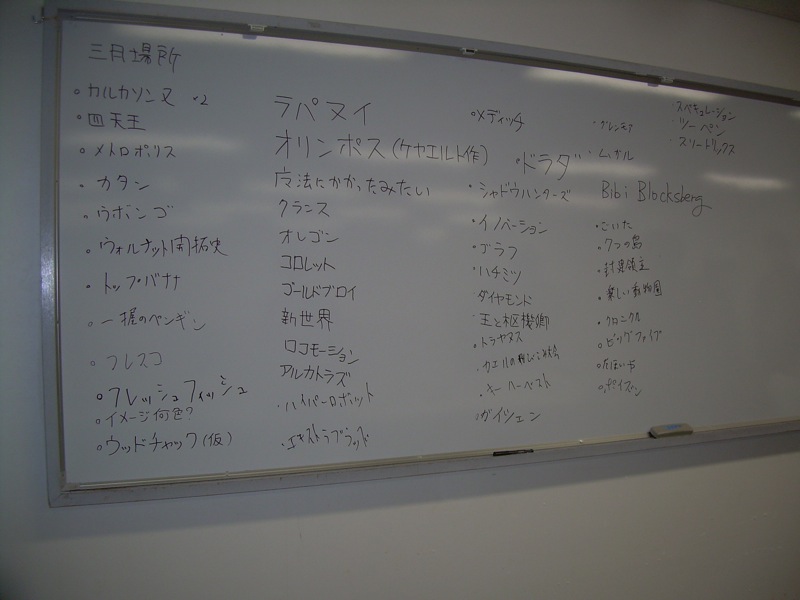 三月場所
カルカソンヌ ×2
四天王
メトロポリス
カタン
ウボンゴ
ウォルナット開拓史
トップバナナ
一握のペンギン
フレスコ
フレッシュフィッシュ
イメージ何色?
ウッドチャック(仮)
ラパヌイ
オリンポス(ケヤエルト作)
魔法にかかったみたい
クランス
オレゴン
コロレット
ゴールドブロイ
新世界
ロコモーション
アルカトラズ
ハイパーロボット
エキストラブラッド
メディッチ
ドラダ
シャドウハンターズ
イノベーション
ブラフ
ハチミツ
ダイヤモンド
王と枢機卿
トラヤヌス
キーハーベスト
ガイツェン
グレンモア
ムガル
Bibi Blocksberg
ごいた
7つの島
封算領主
楽しい動物園
クロニクル
ビッグファイブ
たほい也
ポイズン
スペキュレーション
ツーペン
スリートリックス